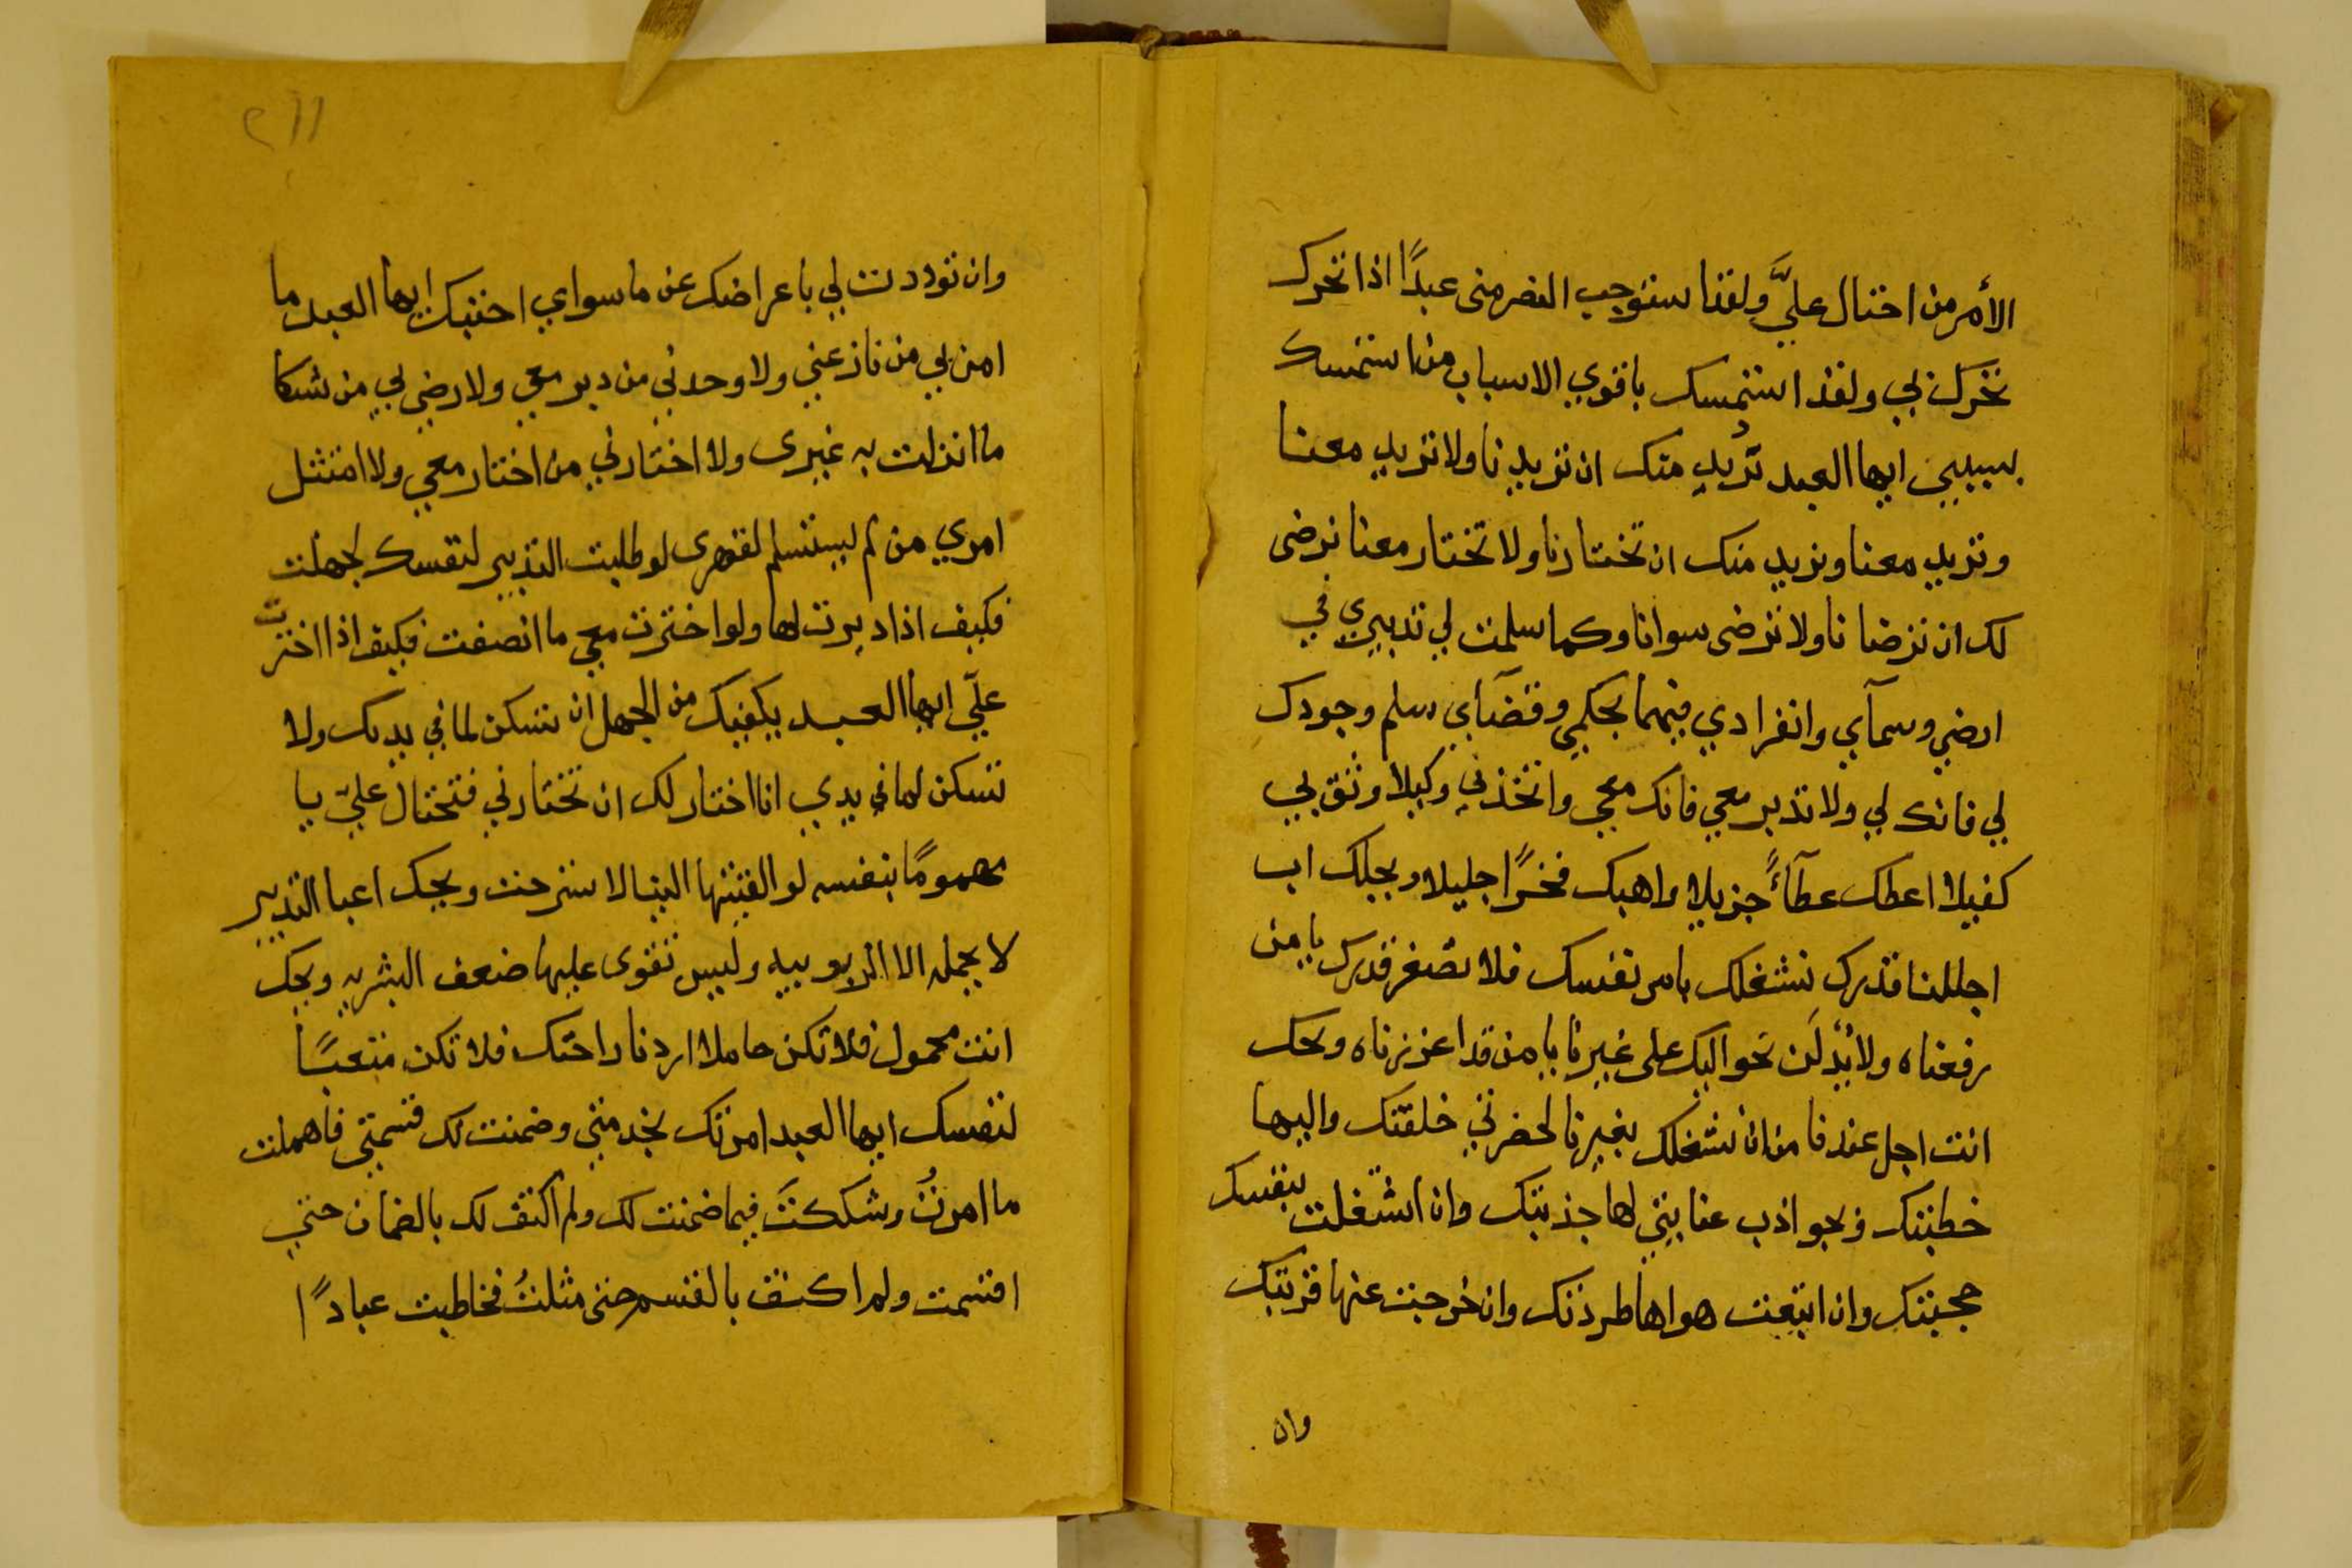 الأمر من اختال عليَّ ولقد استوجب النصر منى عبدًا اذا تحرك
تحرك بي ولقد استمسك باقوي الاسباب من استمسك
بسببي ايها العبد تريد منك ان تريدنا ولا تريد معنا
وتريد معنا ونريد منك ان تختارنا ولا تختار معنا نرضى
لك ان ترضانا ولا ترضى سوانا وكما سلمت لي تدبيري في
ارضي وسمآي وانفرادي فيهما بحكمي وقضآي سلم وجودك
لي فانك لي ولا تدبر معي فانك معي واتخذني وكيلا وثق بي
كفيلا اعطك عطآءً جزيلا واهبك فخرًا جليلا ويحلك اب
اجللنا قدرك نشغلك بامر نفسك فلا تصغر قدرك يا من
رفعناه ولا تذلن نحواليك على غيرنا يا من قد اعززناه ويحك
انت اجل عندنا من ان نشغلك بغيرنا لحضرتي خلقتك واليها
خطبتك وبجواذب عنايتي لها جذبتك وان اشتغلت بنفسك
حجبتك وان اتبعت هواها طردتك وان خرجت عنها قربتك
وان
٢١١
وان توددت لي باعراضك عن ماسواي احببتك ايها العبد ما
امن بي من نازعني ولا وحدني من دبر معي ولا رضي بي من شكا
ما انزلت به غيرى ولا اختارني من اختار معي ولا امتثل
امري من لم يستسلم لقهرى لو طلبت التدبير لنفسك لجهلت
فكيف اذا دبرت لها ولو اخترت معي ما انصفت فكيف اذا اخترت
عليّ ايها العبد يكفيك من الجهل ان تسكن لما في يدك ولا
تسكن لما في يدي انا اختار لك ان تختارني فتختال عليّ يا
مهمومًا بنفسه لو القيتها الينا لاسترحت ويحك اعبا التدبير
لا يحمله الا الربوبيه وليس تقوى عليها ضعف البشريه ويحك
انت محمول فلا تكن حاملا اردنا راحتك فلا تكن متعبًا
لنفسك ايها العبد امرتك بخدمتي وضمنت لك قسمتي فاهملت
ما امرتُ وشككتَ فيما ضمنت لك ولم اكتف لك بالضمان حتي
اقسمت ولم اكتف بالقسم حتى مثلتُ فخاطبت عبادًا